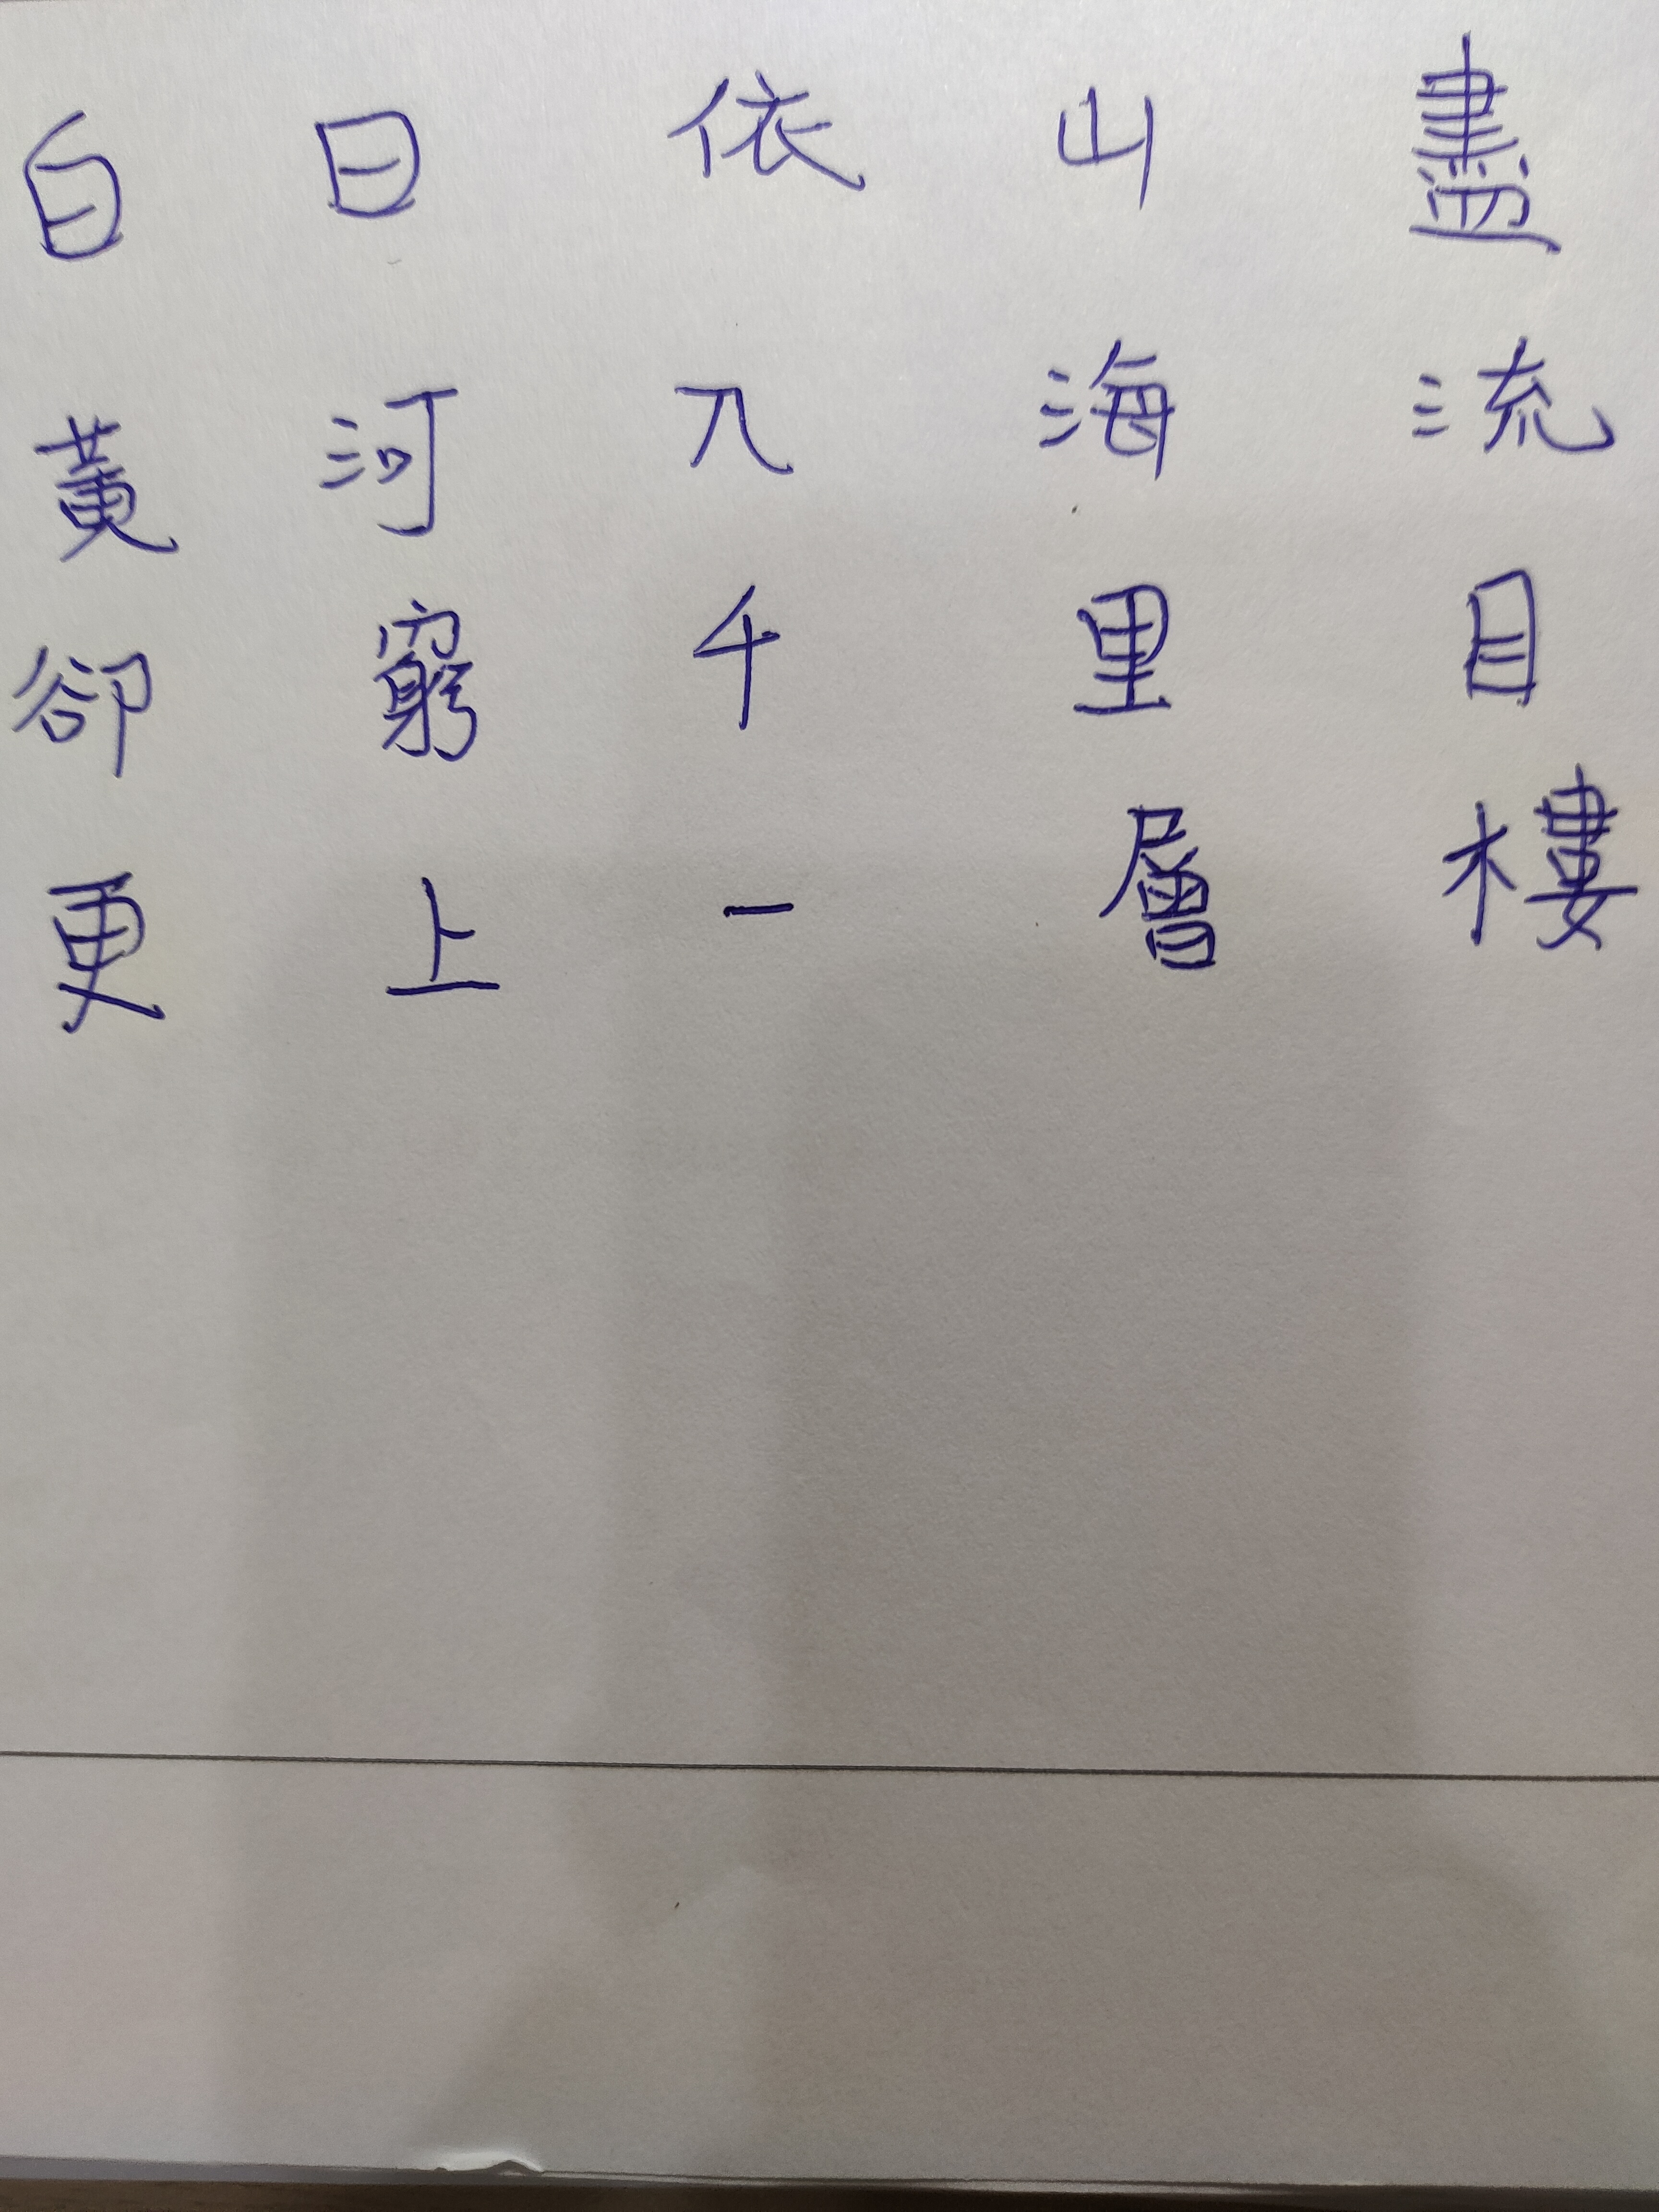 白日依山盡
黃河入海流
卻窮千里目
更上一層樓